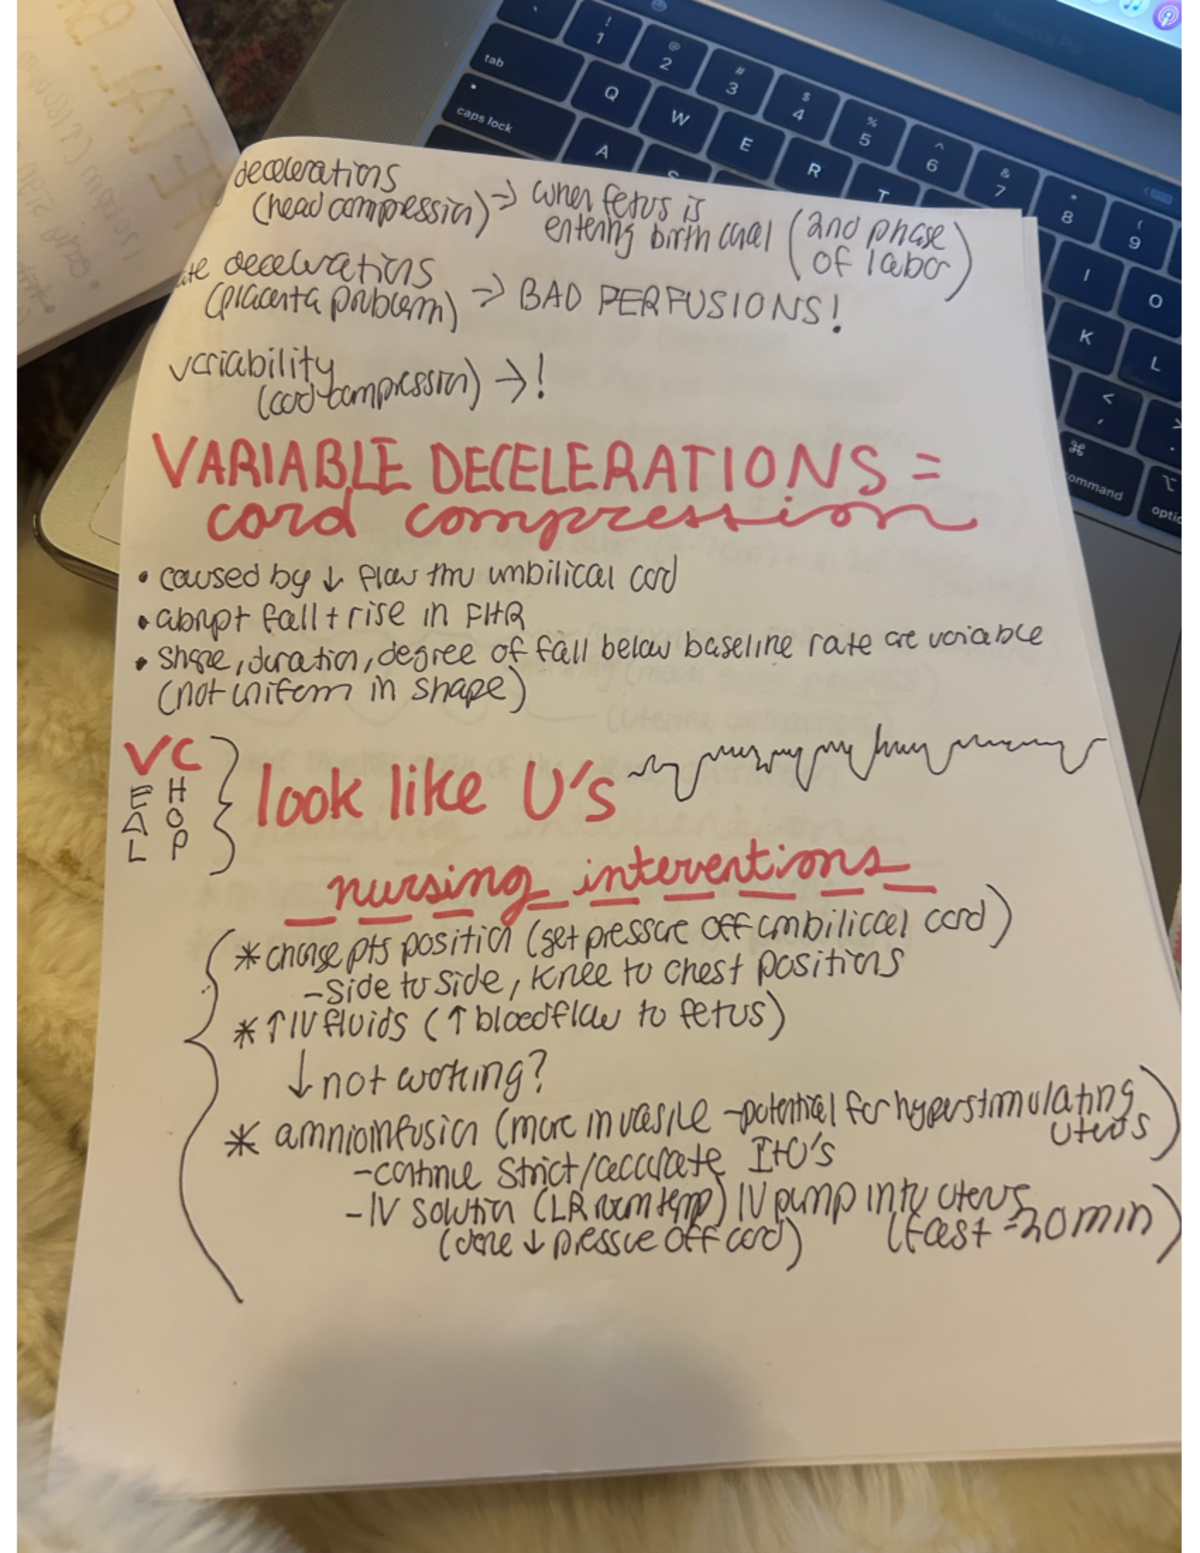 decelerations
(head compression) → when fetus is
entering birth canal (2nd phase
of labor)
decelerations
(placenta problem) → BAD PERFUSIONS!
variability
(cord compression) → !
VARIABLE DECELERATIONS =
cord compression
• caused by ↓ flow thru umbilical cord
• abrupt fall + rise in FHR
• shape, duration, degree of fall below baseline rate are variable
(not uniform in shape)
VC
E H
A O
L P
look like U's
nursing interventions
* change pts position (get pressure off umbilical cord)
- side to side, knee to chest positions
* ↑ IV fluids (↑ bloodflow to fetus)
↓ not working?
* amnioinfusion (more invasive - potential for hyperstimulating
uterus)
- continue strict/accurate I+O's
- IV solution (LR room temp) IV pump into uterus
(done ↓ pressure off cord) (fast = 20 min)
tab
caps lock
! 1
@ 2
# 3
$ 4
% 5
^ 6
& 7
* 8
( 9
Q W E R T
A S
I O
K L
< ,
⌘
command